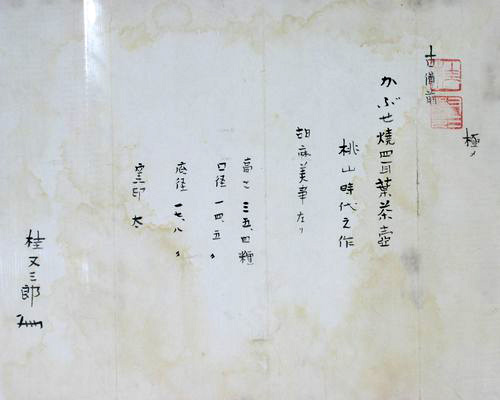 極メ
古備前
かぶせ燒四耳葉茶壺
桃山時代之作
胡麻美事
高サ 三五、四糎
口径 一四、五〃
底径 一七、八〃
窯印
桂又三郎